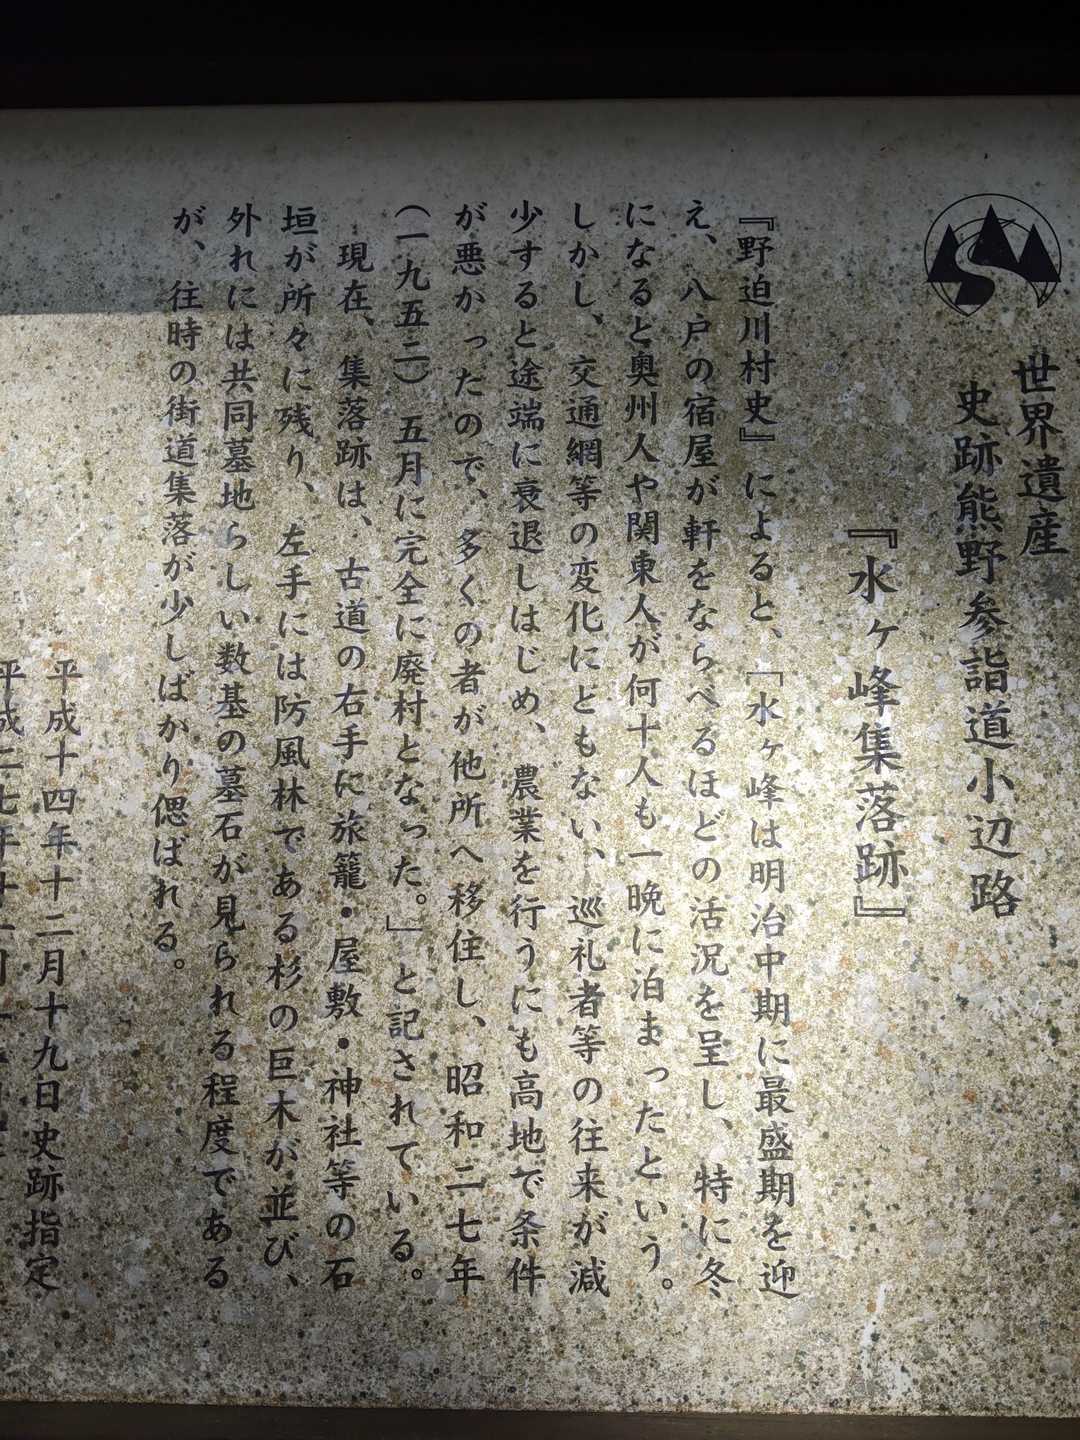 世界遺産
史跡熊野参詣道小辺路
『水ヶ峰集落跡』
『野迫川村史』によると、「水ヶ峰は明治中期に最盛期を迎
え、八戸の宿屋が軒をならべるほどの活況を呈し、特に冬
になると奥州人や関東人が何十人も一晩に泊まったという。
しかし、交通網等の変化にともない、巡礼者等の往来が減
少すると途端に衰退しはじめ、農業を行うにも高地で条件
が悪かったので、多くの者が他所へ移住し、昭和二七年
(一九五二)五月に完全に廃村となった。」と記されている。
現在、集落跡は、古道の右手に旅籠・屋敷・神社等の石
垣が所々に残り、左手には防風林である杉の巨木が並び、
外れには共同墓地らしい数基の墓石が見られる程度である
が、往時の街道集落が少しばかり偲ばれる。
平成十四年十二月十九日史跡指定
平成二七年